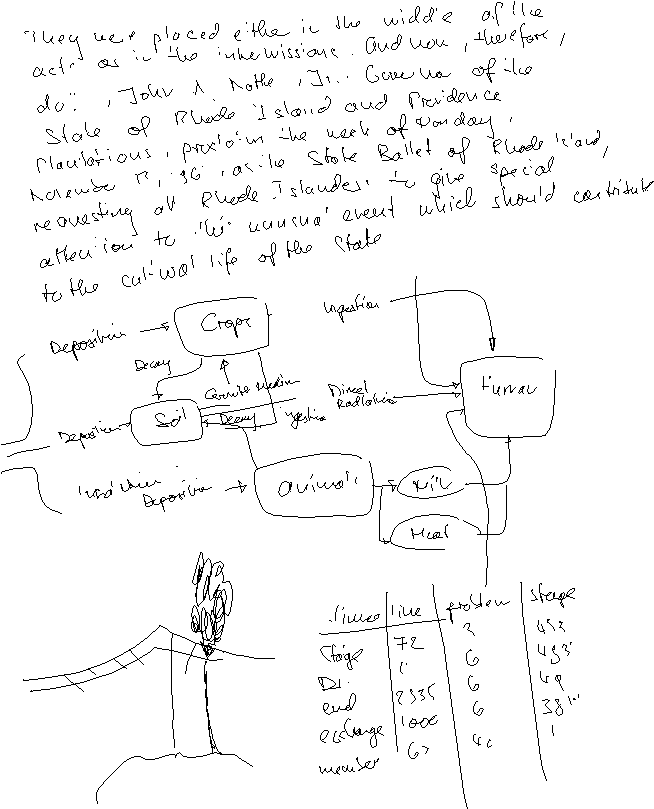 They were placed either in the middle of the
acts as in the intermissions. And now, therefore,
do. , John A Notte, Jr. Governor of the
State of Rhode Island and Providence
Plantations, proclaim the week of Monday,
November as the State Ballet of Rhode Island,
requesting all Rhode Islanders to give special
attention to this unusual event which should contribute
to the cultural life of the State
Deposition Crops Ingestion
Decay
Human
Soil Direct
Radiation
Deposition Decay Ingestion
Deposition Animals Milk
Meat
line problem stage
Stage 72 3
6
end 2335 6
exchange 1000 6
member